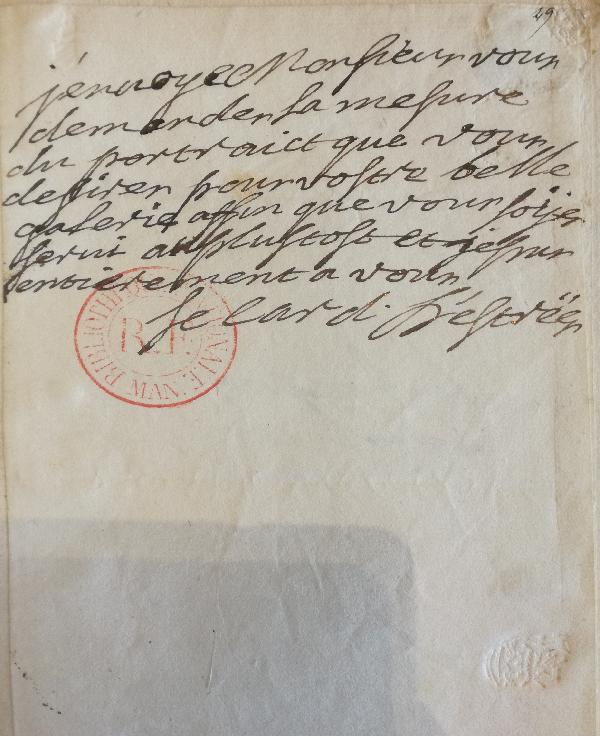 29
j'envoye Monsieur vous
demander la mesure
du portraict que vous
desirez pour vostre belle
galerie affin que vous soÿez
servi au plustost et je suis
entierement a vous
le card. d'estrëes
BIBLIOTHEQUE NATIONALE MAN.
R.F.